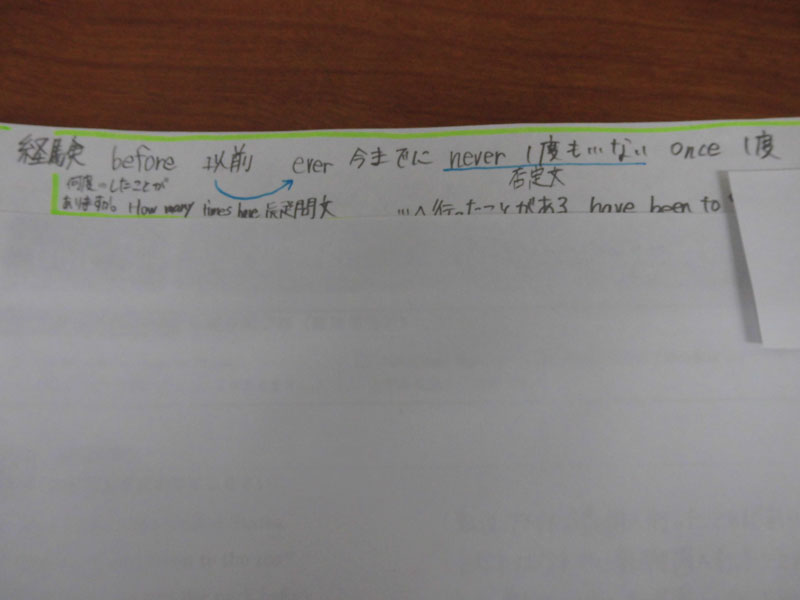 経験 before 以前 ever 今までに never 1度も…ない once 1度
否定文
何度…したことが
ありますか。 How many times have 疑問文 …へ行ったことがある have been to